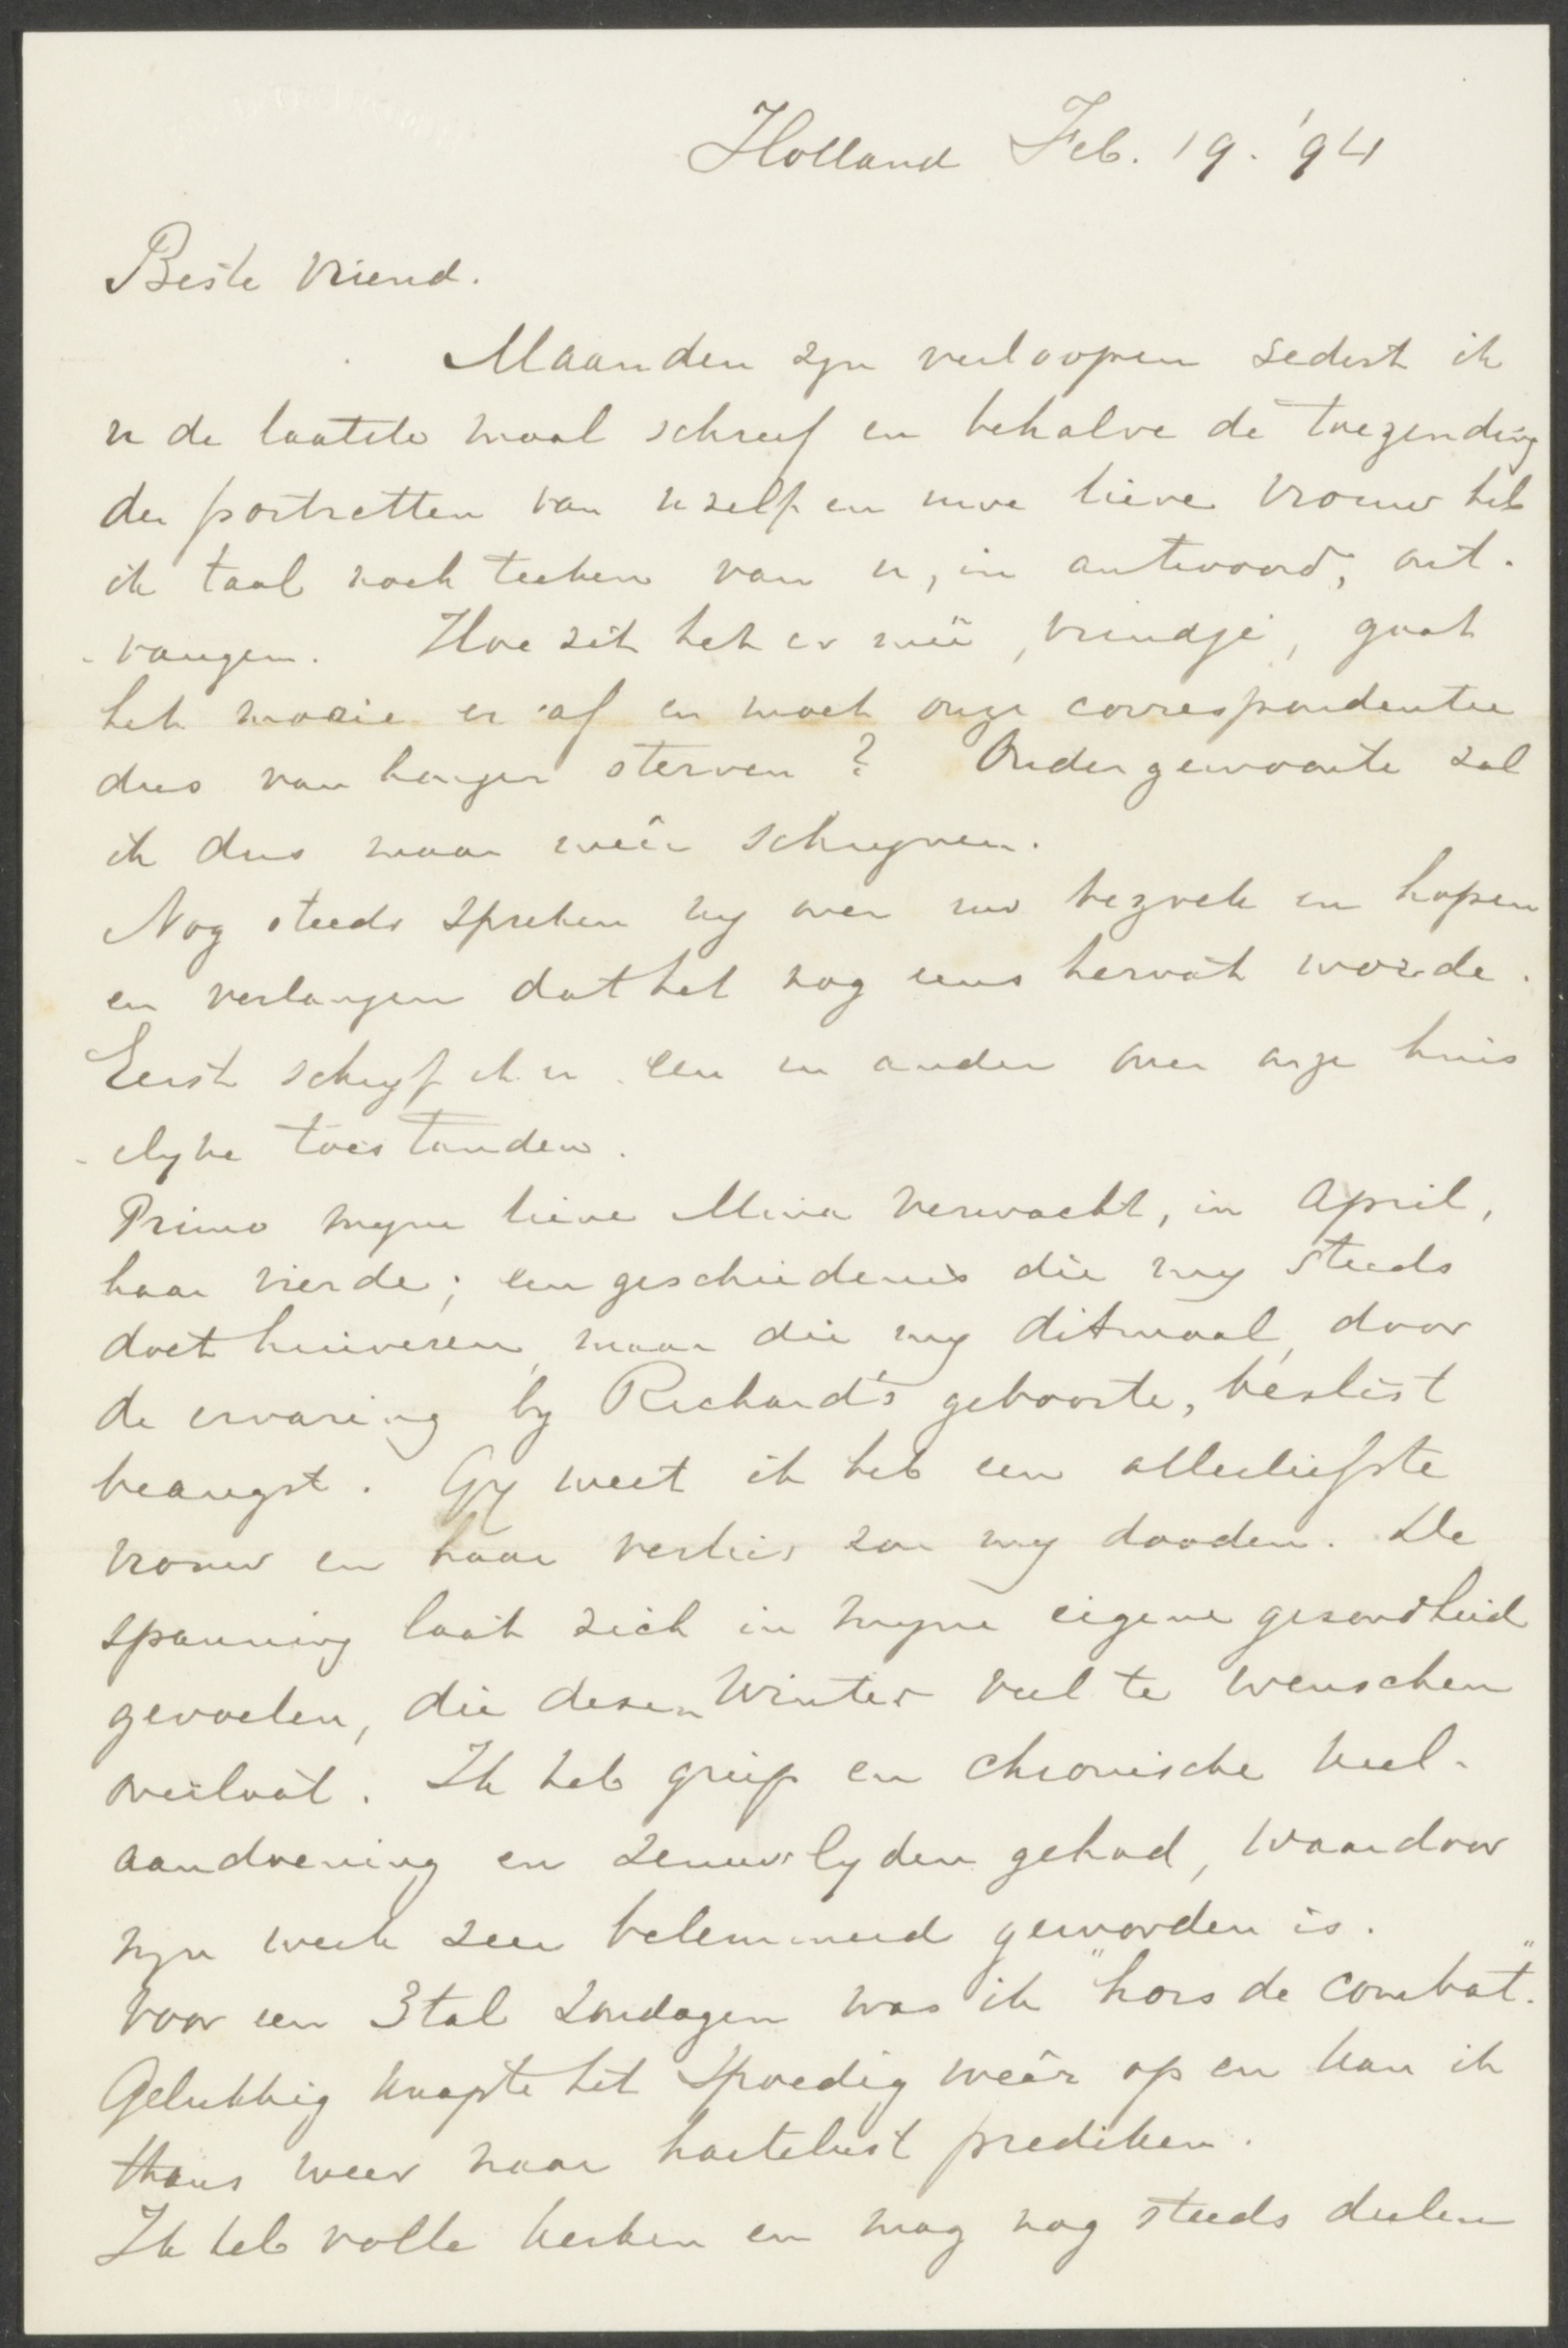 Holland Feb. 19. '94
Beste Vriend.
Maanden zyn verloopen sedert ik
u de laatste maal schreef en behalve de toezending
der portretten van u zelf en uwe lieve vrouw heb
ik taal noch teeken van u, in antwoord, ont-
-vangen. Hoe zit het er meê, vriendje, gaat
het mooie er af en moet onze correspondentie
dus van honger sterven? Oudergewoonte zal
ik dus maar weêr schryven.
Nog steeds spreken wy over uw bezoek en hopen
en verlangen dat het nog eens hervat worde.
Eerst schryf ik u een en ander over onze huis
-elyke toestanden.
Primo myne lieve Mina verwacht, in April,
haar vierde; een geschiedenis die my steeds
doet huiveren, maar die my ditmaal, door
de ervaring by Richard's geboorte, beslist
beangst. Gy weet ik heb een allerliefste
vrouw en haar verlies zou my dooden. De
spanning laat zich in myne eigene gezondheid
gevoelen, die dezen Winter veel te wenschen
overlaat. Ik heb griep en chronische keel-
aandoening en zenuwlyden gehad, waardoor
myn werk zeer belemmerd geworden is.
Voor een 3tal Zondagen was ik "hors de combat".
Gelukkig knapte het spoedig weêr op en kan ik
thans weer naar hartelust prediken.
Ik heb volle kerken en mag nog steeds deelen